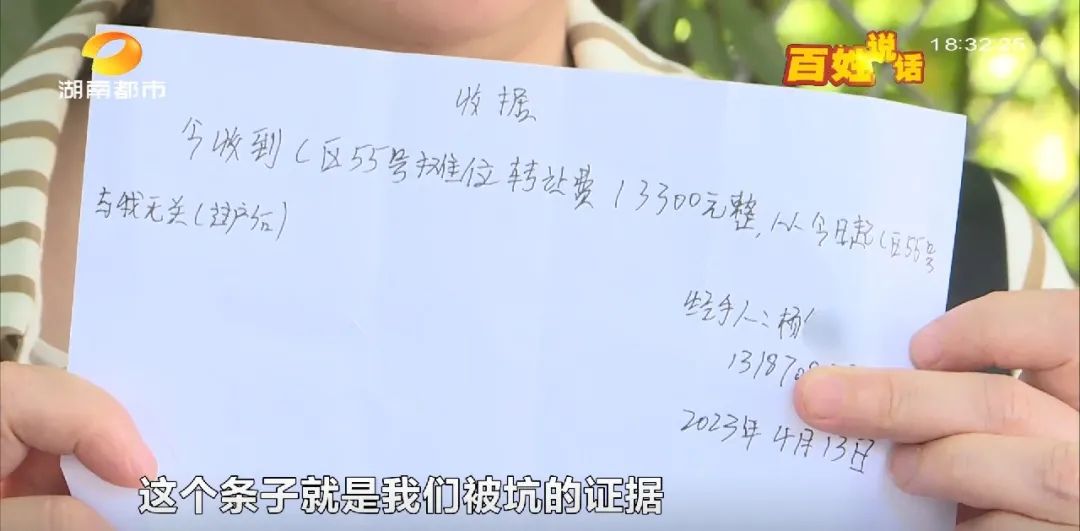 湖南都市
百姓说话
18:32:25
收据
今收到C区55号摊位转让费13300元整,从今日起C区55号
与我无关(过户后)
经手人:杨
13187
2023年4月13日
这个条子就是我们被坑的证据